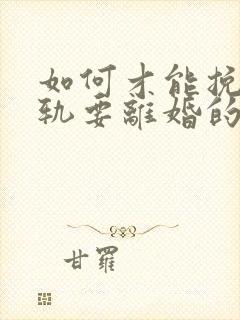 如何才能挽
轨要離婚的
甘羅